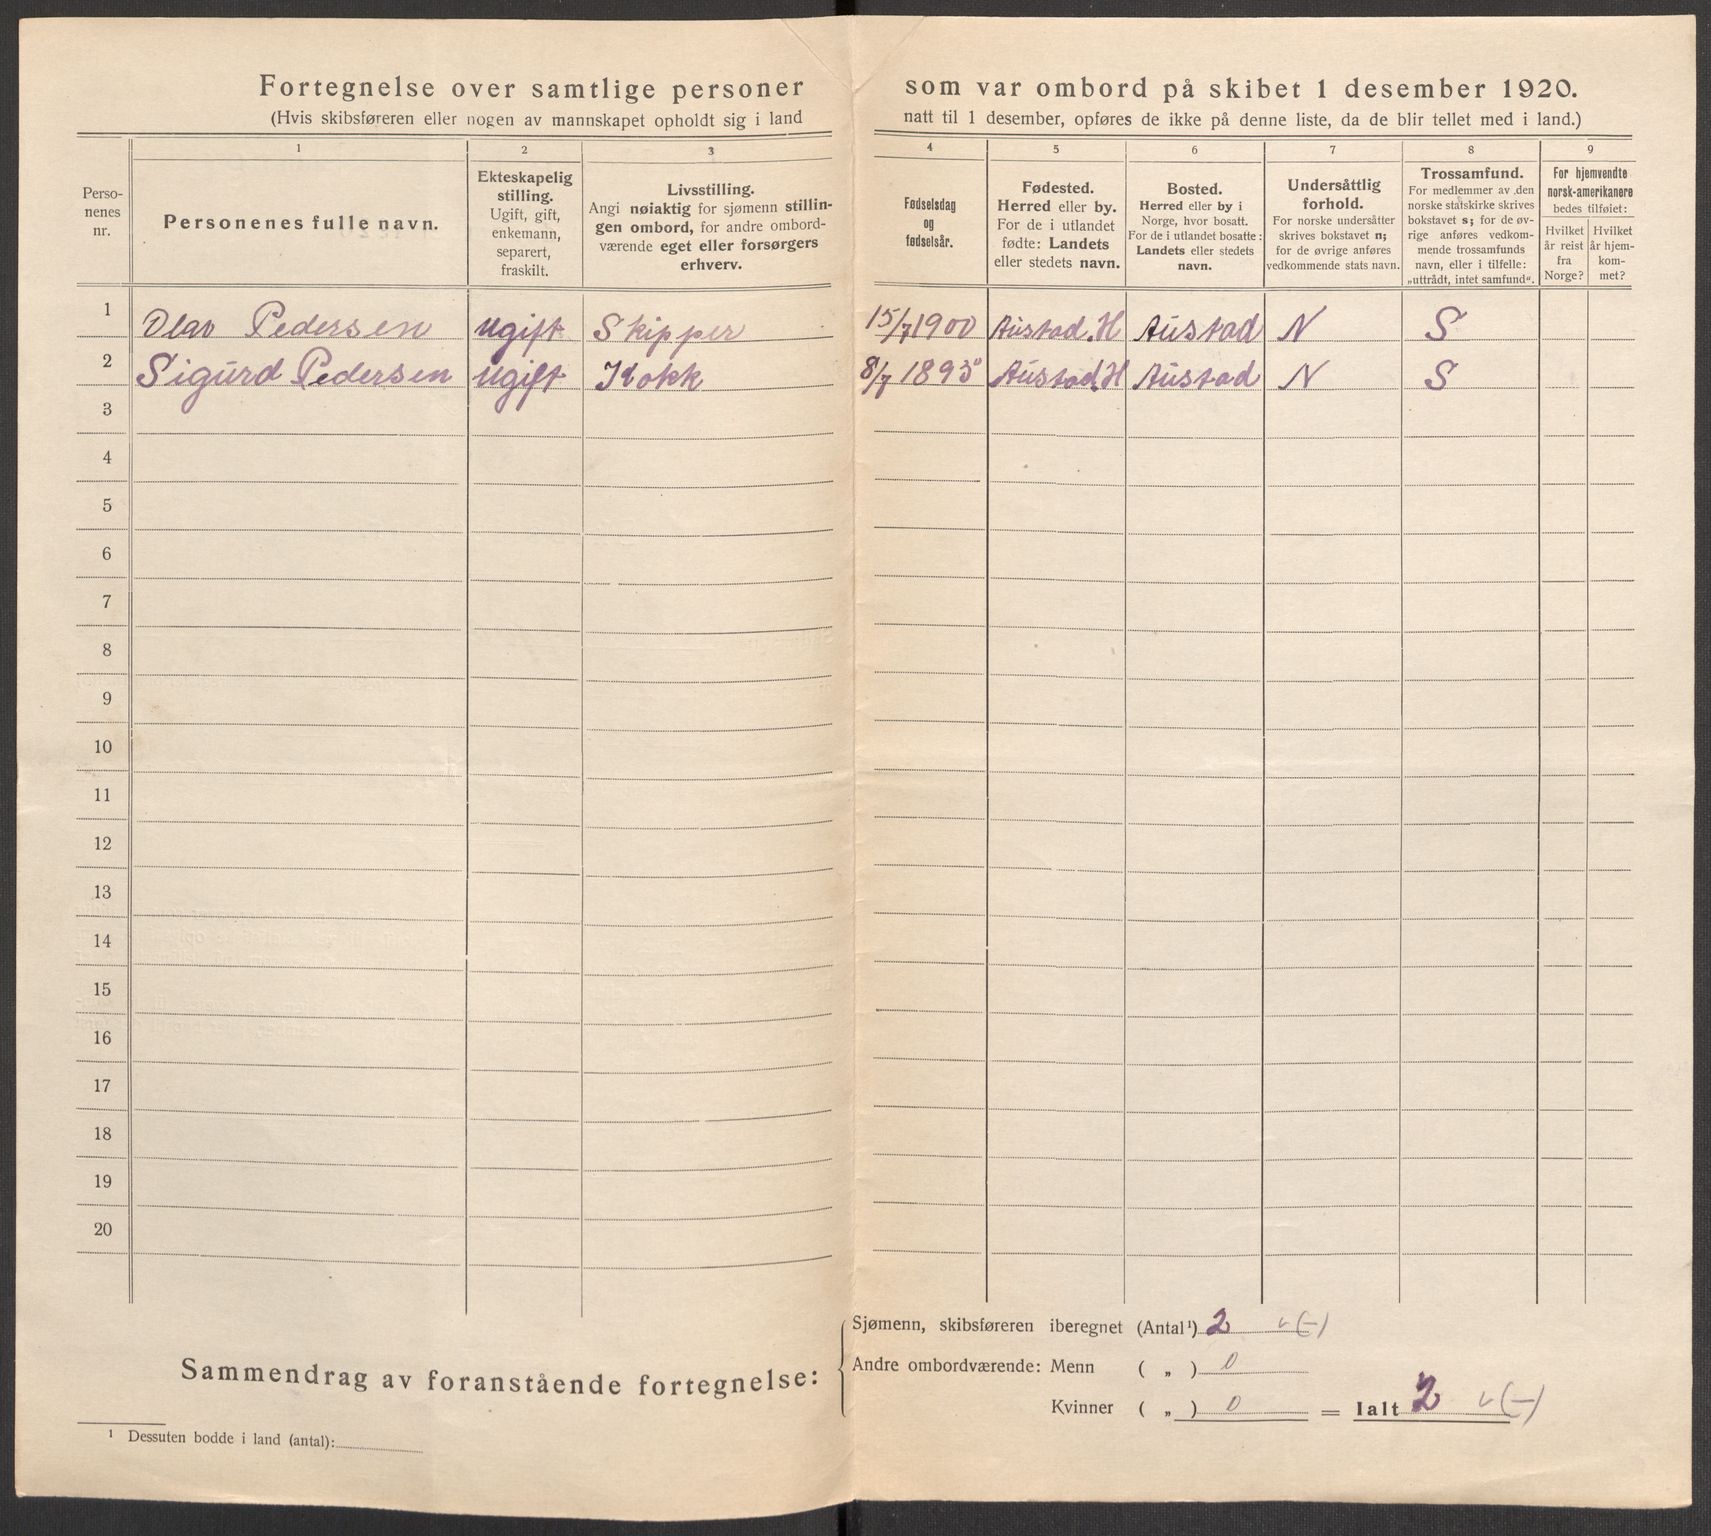 Fortegnelse over samtlige personer som var ombord på skibet 1 desember 1920.
(Hvis skibsføreren eller nogen av mannskapet opholdt sig i land natt til 1 desember, opføres de ikke på denne liste, da de blir tellet med i land.)
1 2 3 4 5 6 7 8 9
Perso-
nenes
nr.
Personenes fulle navn.
Ekteskapelig
stilling.
Ugift, gift,
enkemann,
separert,
fraskilt.
Livsstilling.
Angi nøiaktig for sjømenn stillin-
gen ombord, for andre ombord-
værende eget eller forsørgers
erhverv.
Fødselsdag
og
fødselsår.
Fødested.
Herred eller by.
For de i utlandet
fødte: Landets
eller stedets navn.
Bosted.
Herred eller by i
Norge, hvor bosatt.
For de i utlandet bosatte:
Landets eller stedets
navn.
Undersåttlig
forhold.
For norske undersåtter
skrives bokstavet n;
for de øvrige anføres
vedkommende stats navn.
Trossamfund.
For medlemmer av den
norske statskirke skrives
bokstavet s; for de øv-
rige anføres vedkom-
mende trossamfunds
navn, eller i tilfelle:
„uttrådt, intet samfund“.
For hjemvendte
norsk-amerikanere
bedes tilføiet:
Hvilket
år reist
fra
Norge?
Hvilket
år hjem-
kom-
met?
1 Olav Pedersen ugift Skipper 15/7 1900 Austad.H Austad N S
2 Sigurd Pedersen ugift Kokk 8/7 1895 Austad.H Austad N S
3
4
5
6
7
8
9
10
11
12
13
14
15
16
17
18
19
20
Sammendrag av foranstående fortegnelse:
Sjømenn, skibsføreren iberegnet (Antal¹) 2 (-)
Andre ombordværende: Menn ( „ ) 0
Kvinner ( „ ) 0 = Ialt 2 (-)
¹ Dessuten bodde i land (antal):